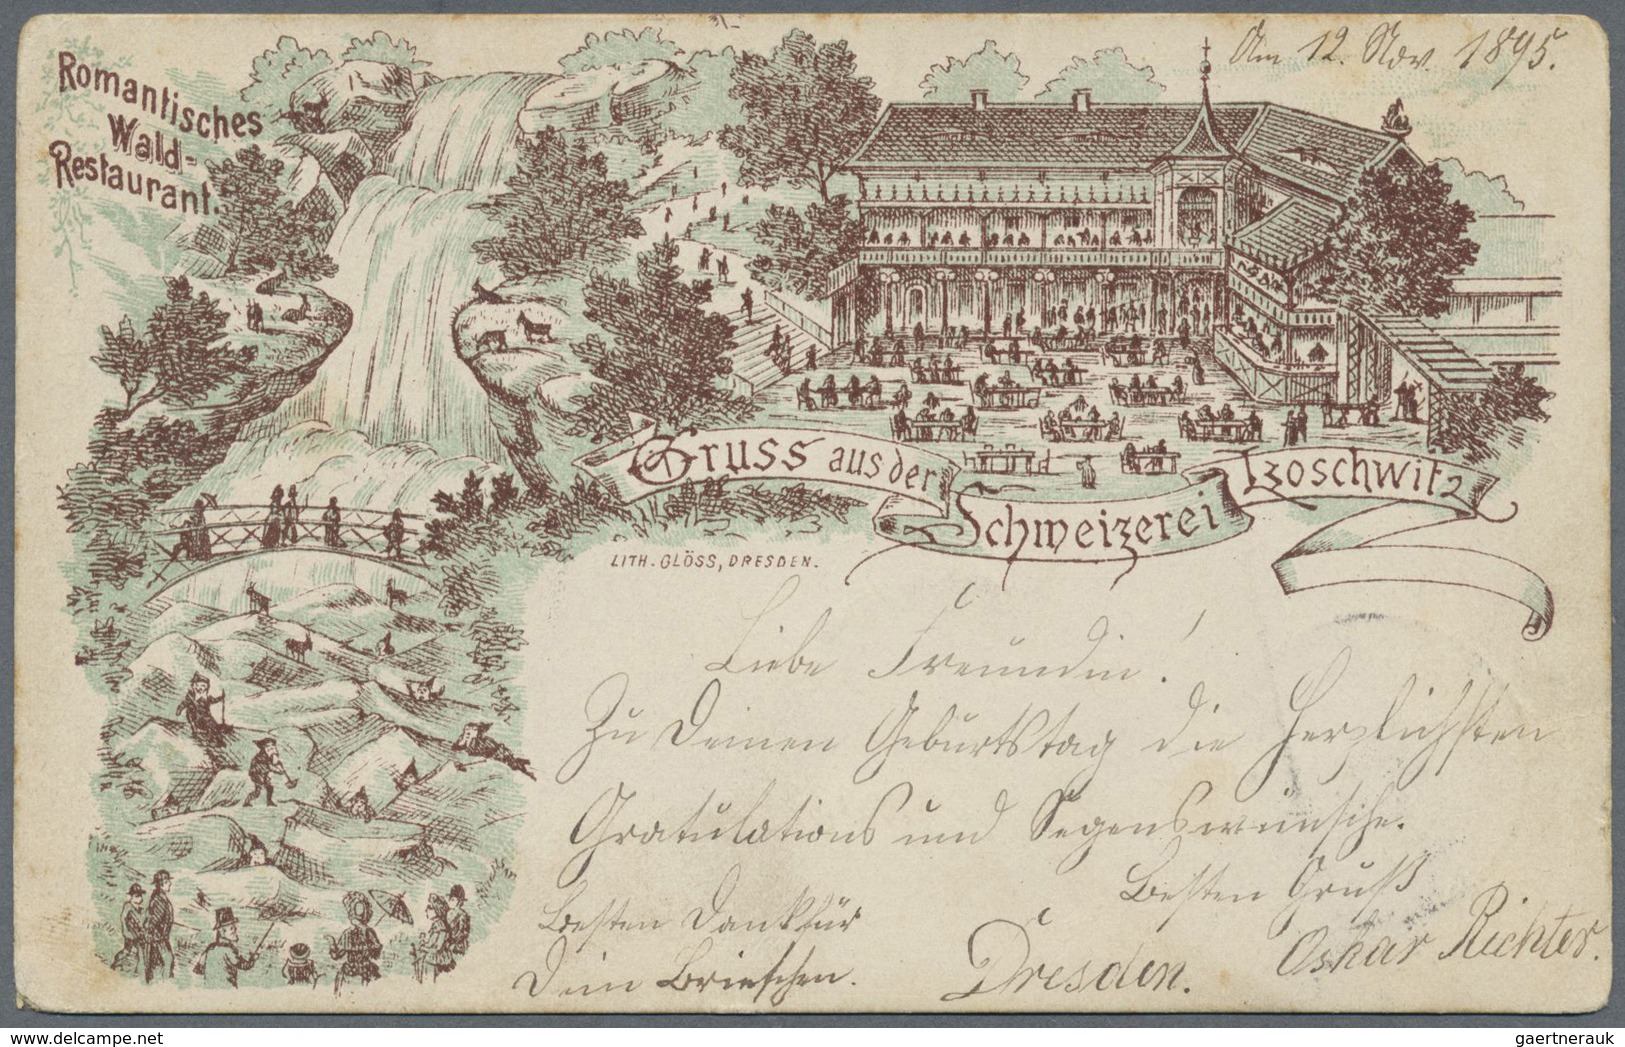 Am 12. Nov. 1895.
Romantisches
Wald-
Restaurant.
Gruss aus der
Schweizerei
Loschwitz
LITH. GLÖSS, DRESDEN.
Liebe Freundin!
Zu Deinen Geburtstag die herzlichsten
Gratulations und Segenswünsche.
Besten Gruß
Besten Dank für
Dein Briefchen.
Dresden.
Oskar Richter.
gaertnerauk